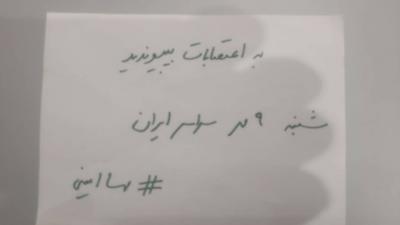 به اعتصابات بپیوندید
شنبه ۹ مهر سراسر ایران
#مهسا_امینی